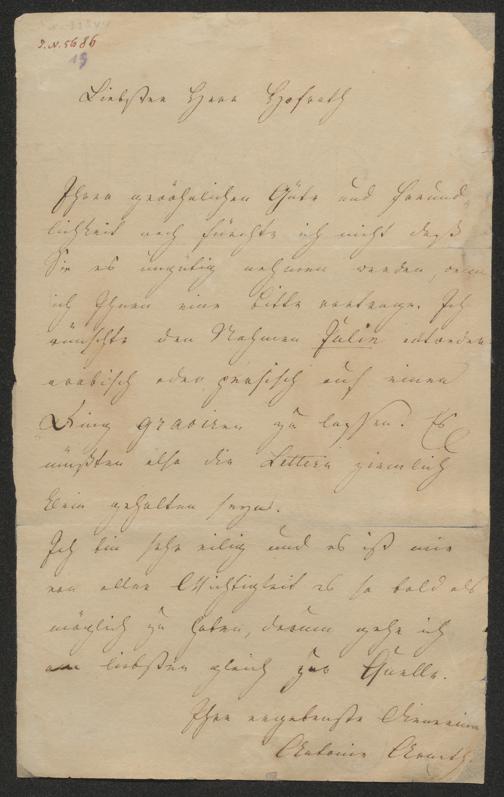 I.N. 5686
19
Liebster Herr Hofrath
Ihrer gewöhnlichen Güte und Freund-
lichkeit nach fürchte ich nicht daß
Sie es ungütig nehmen werden, wenn
ich Ihnen eine Bitte vortrage. Ich
wünschte den Nahmen Julie entweder
arabisch oder persisch auf einen
Ring graviren zu lassen. Es
müßten also die Lettern ziemlich
klein gehalten seyn.
Ich bin sehr eilig und es ist mir
von aller Wichtigkeit es so bald als
möglich zu haben, darum gehe ich
am liebsten gleich zur Quelle.
Ihre ergebenste Dienerin
Antonie